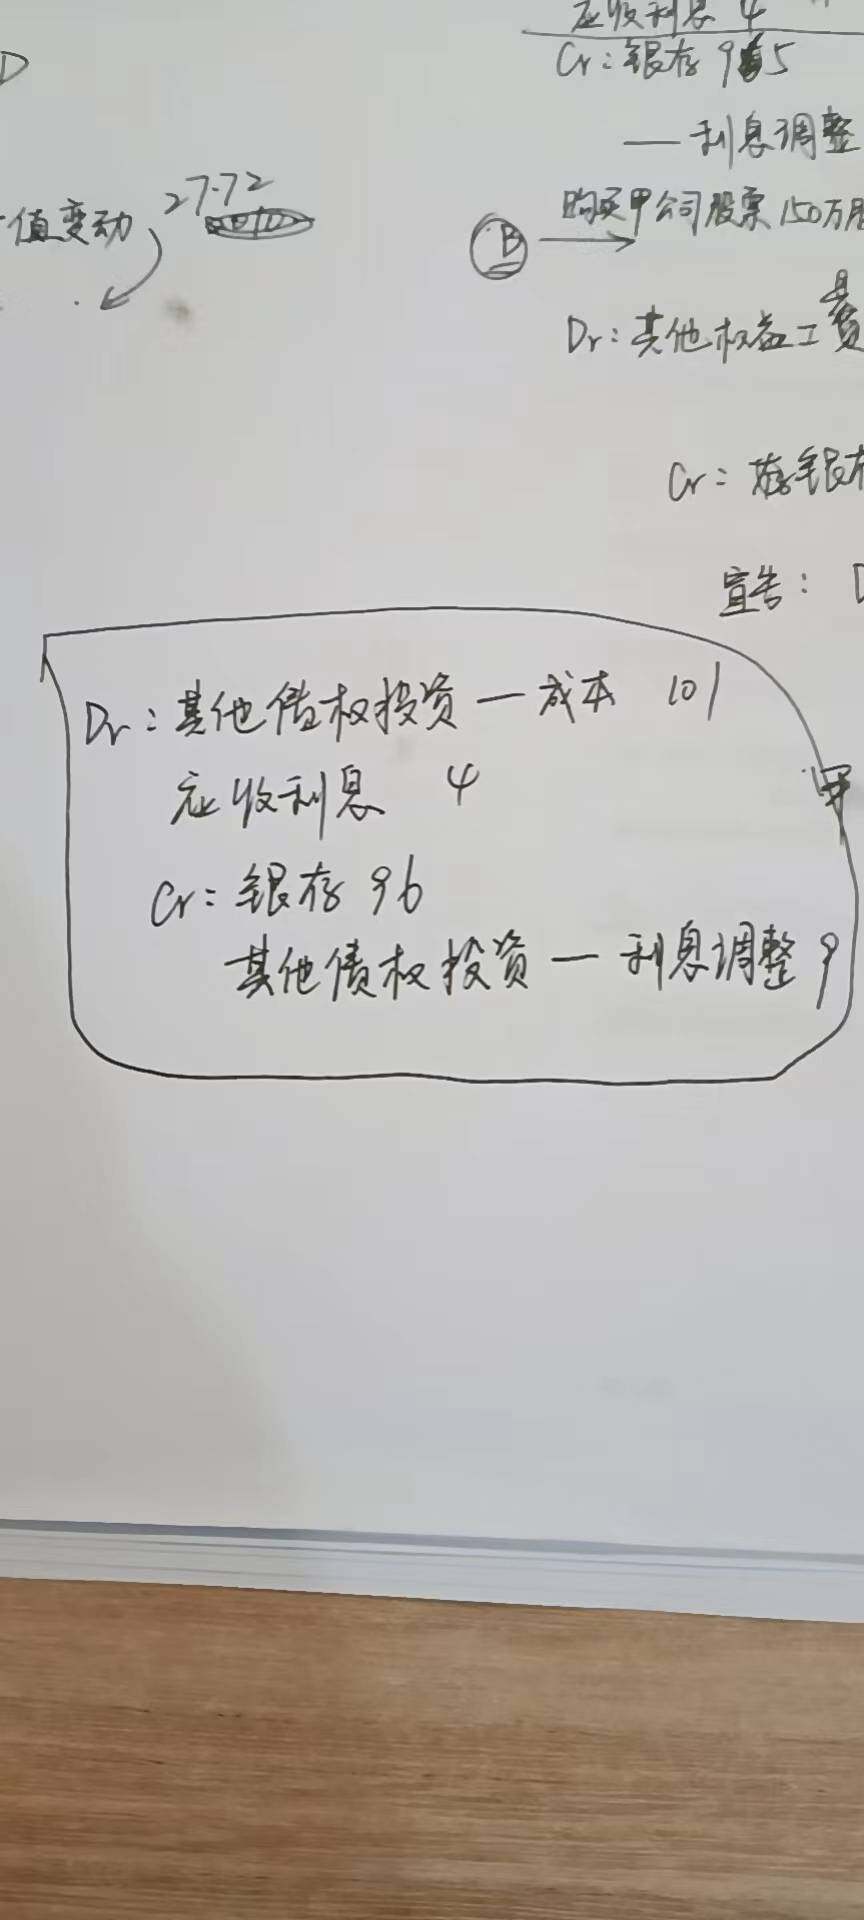 应收利息 4
Cr：银存 95
D
— 利息调整
值变动 27.72
B 购买甲公司股票150万股
Dr：其他权益工
Cr：银存
宣告：D
Dr：其他债权投资 — 成本 101
应收利息 4
Cr：银存 96
其他债权投资 — 利息调整 9